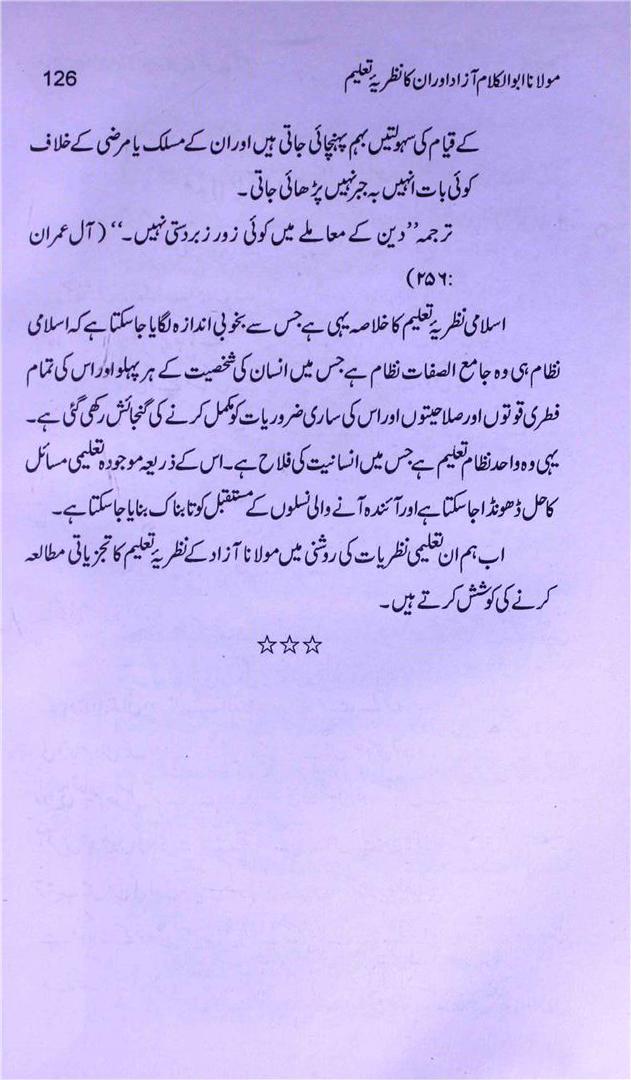 مولانا ابوالکلام آزاد اور ان کا نظریۂ تعلیم 126
کے قیام کی سہولتیں بہم پہنچائی جاتی ہیں اور ان کے مسلک یا مرضی کے خلاف
کوئی بات انہیں بہ جبر نہیں پڑھائی جاتی۔
ترجمہ ’’دین کے معاملے میں کوئی زور زبردستی نہیں۔‘‘ (آل عمران
:۲۵۶)
اسلامی نظریۂ تعلیم کا خلاصہ یہی ہے جس سے بخوبی اندازہ لگایا جا سکتا ہے کہ اسلامی
نظام ہی وہ جامع الصفات نظام ہے جس میں انسان کی شخصیت کے ہر پہلو اور اس کی تمام
فطری قوتوں اور صلاحیتوں اور اس کی ساری ضروریات کو مکمل کرنے کی گنجائش رکھی گئی ہے۔
یہی وہ واحد نظام تعلیم ہے جس میں انسانیت کی فلاح ہے۔ اس کے ذریعہ موجودہ تعلیمی مسائل
کا حل ڈھونڈا جا سکتا ہے اور آئندہ آنے والی نسلوں کے مستقبل کو تابناک بنایا جا سکتا ہے۔
اب ہم ان تعلیمی نظریات کی روشنی میں مولانا آزاد کے نظریۂ تعلیم کا تجزیاتی مطالعہ
کرنے کی کوشش کرتے ہیں۔
☆☆☆